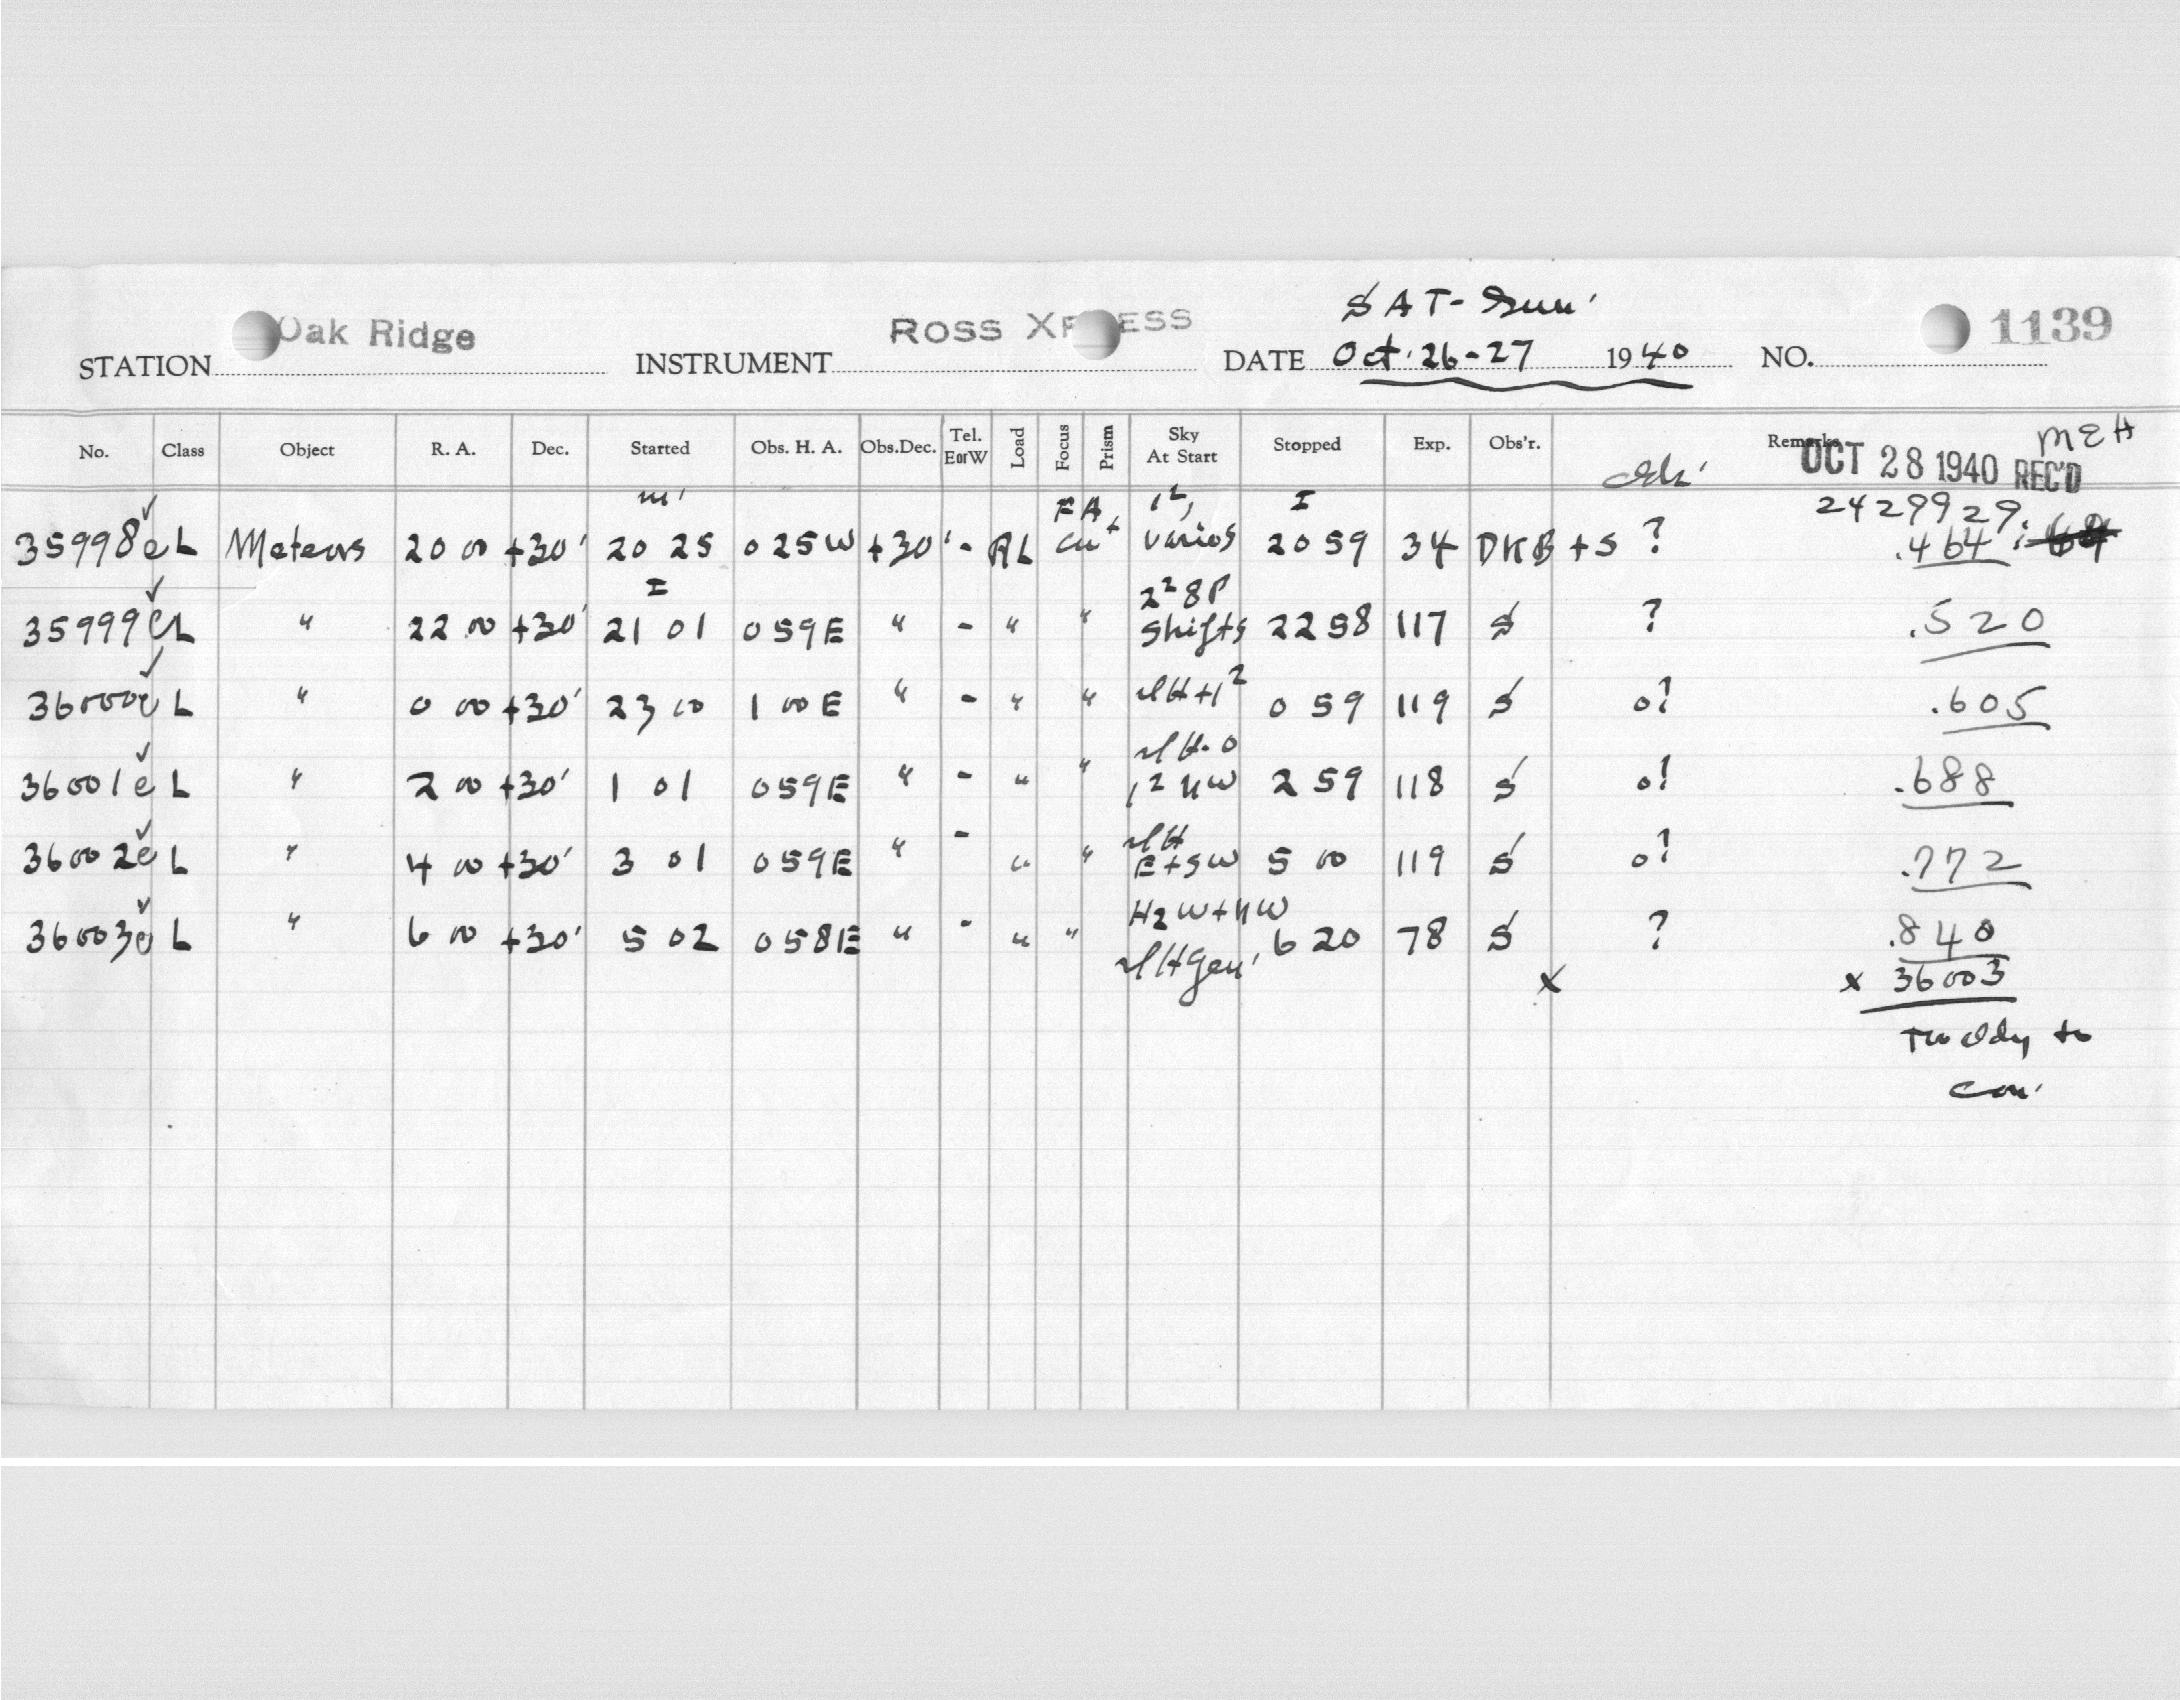 SAT-Sun'
STATION Oak Ridge INSTRUMENT ROSS X ESS DATE Oct. 26-27 1940 NO. 1139
No. Class Object R. A. Dec. Started Obs. H. A. Obs.Dec. Tel. E or W Load Focus Prism Sky At Start Stopped Exp. Obs'r. Remarks MEH
OCT 28 1940 REC'D
m' FA 1², I 2429929.
35998e L Meteors 20 00 +30' 20 25 0 25W +30' - RL varies 20 59 34 DKB+S ? .464
I 2² 8P
35999e L " 22 00 +30' 21 01 0 59E " - " " shifts 22 58 117 S ? .520
36000e L " 0 00 +30' 23 00 1 00 E " - " " H+1² 0 59 119 S 0? .605
36001e L " 2 00 +30' 1 01 0 59E " - " " 1² NW 2 59 118 S 0! .688
36002e L " 4 00 +30' 3 01 0 59E " - " " E+SW 5 00 119 S 0! .772
H2 W+NW
36003e L " 6 00 +30' 5 02 0 58E " - " " 6 20 78 S ? .840
x x 36003
to